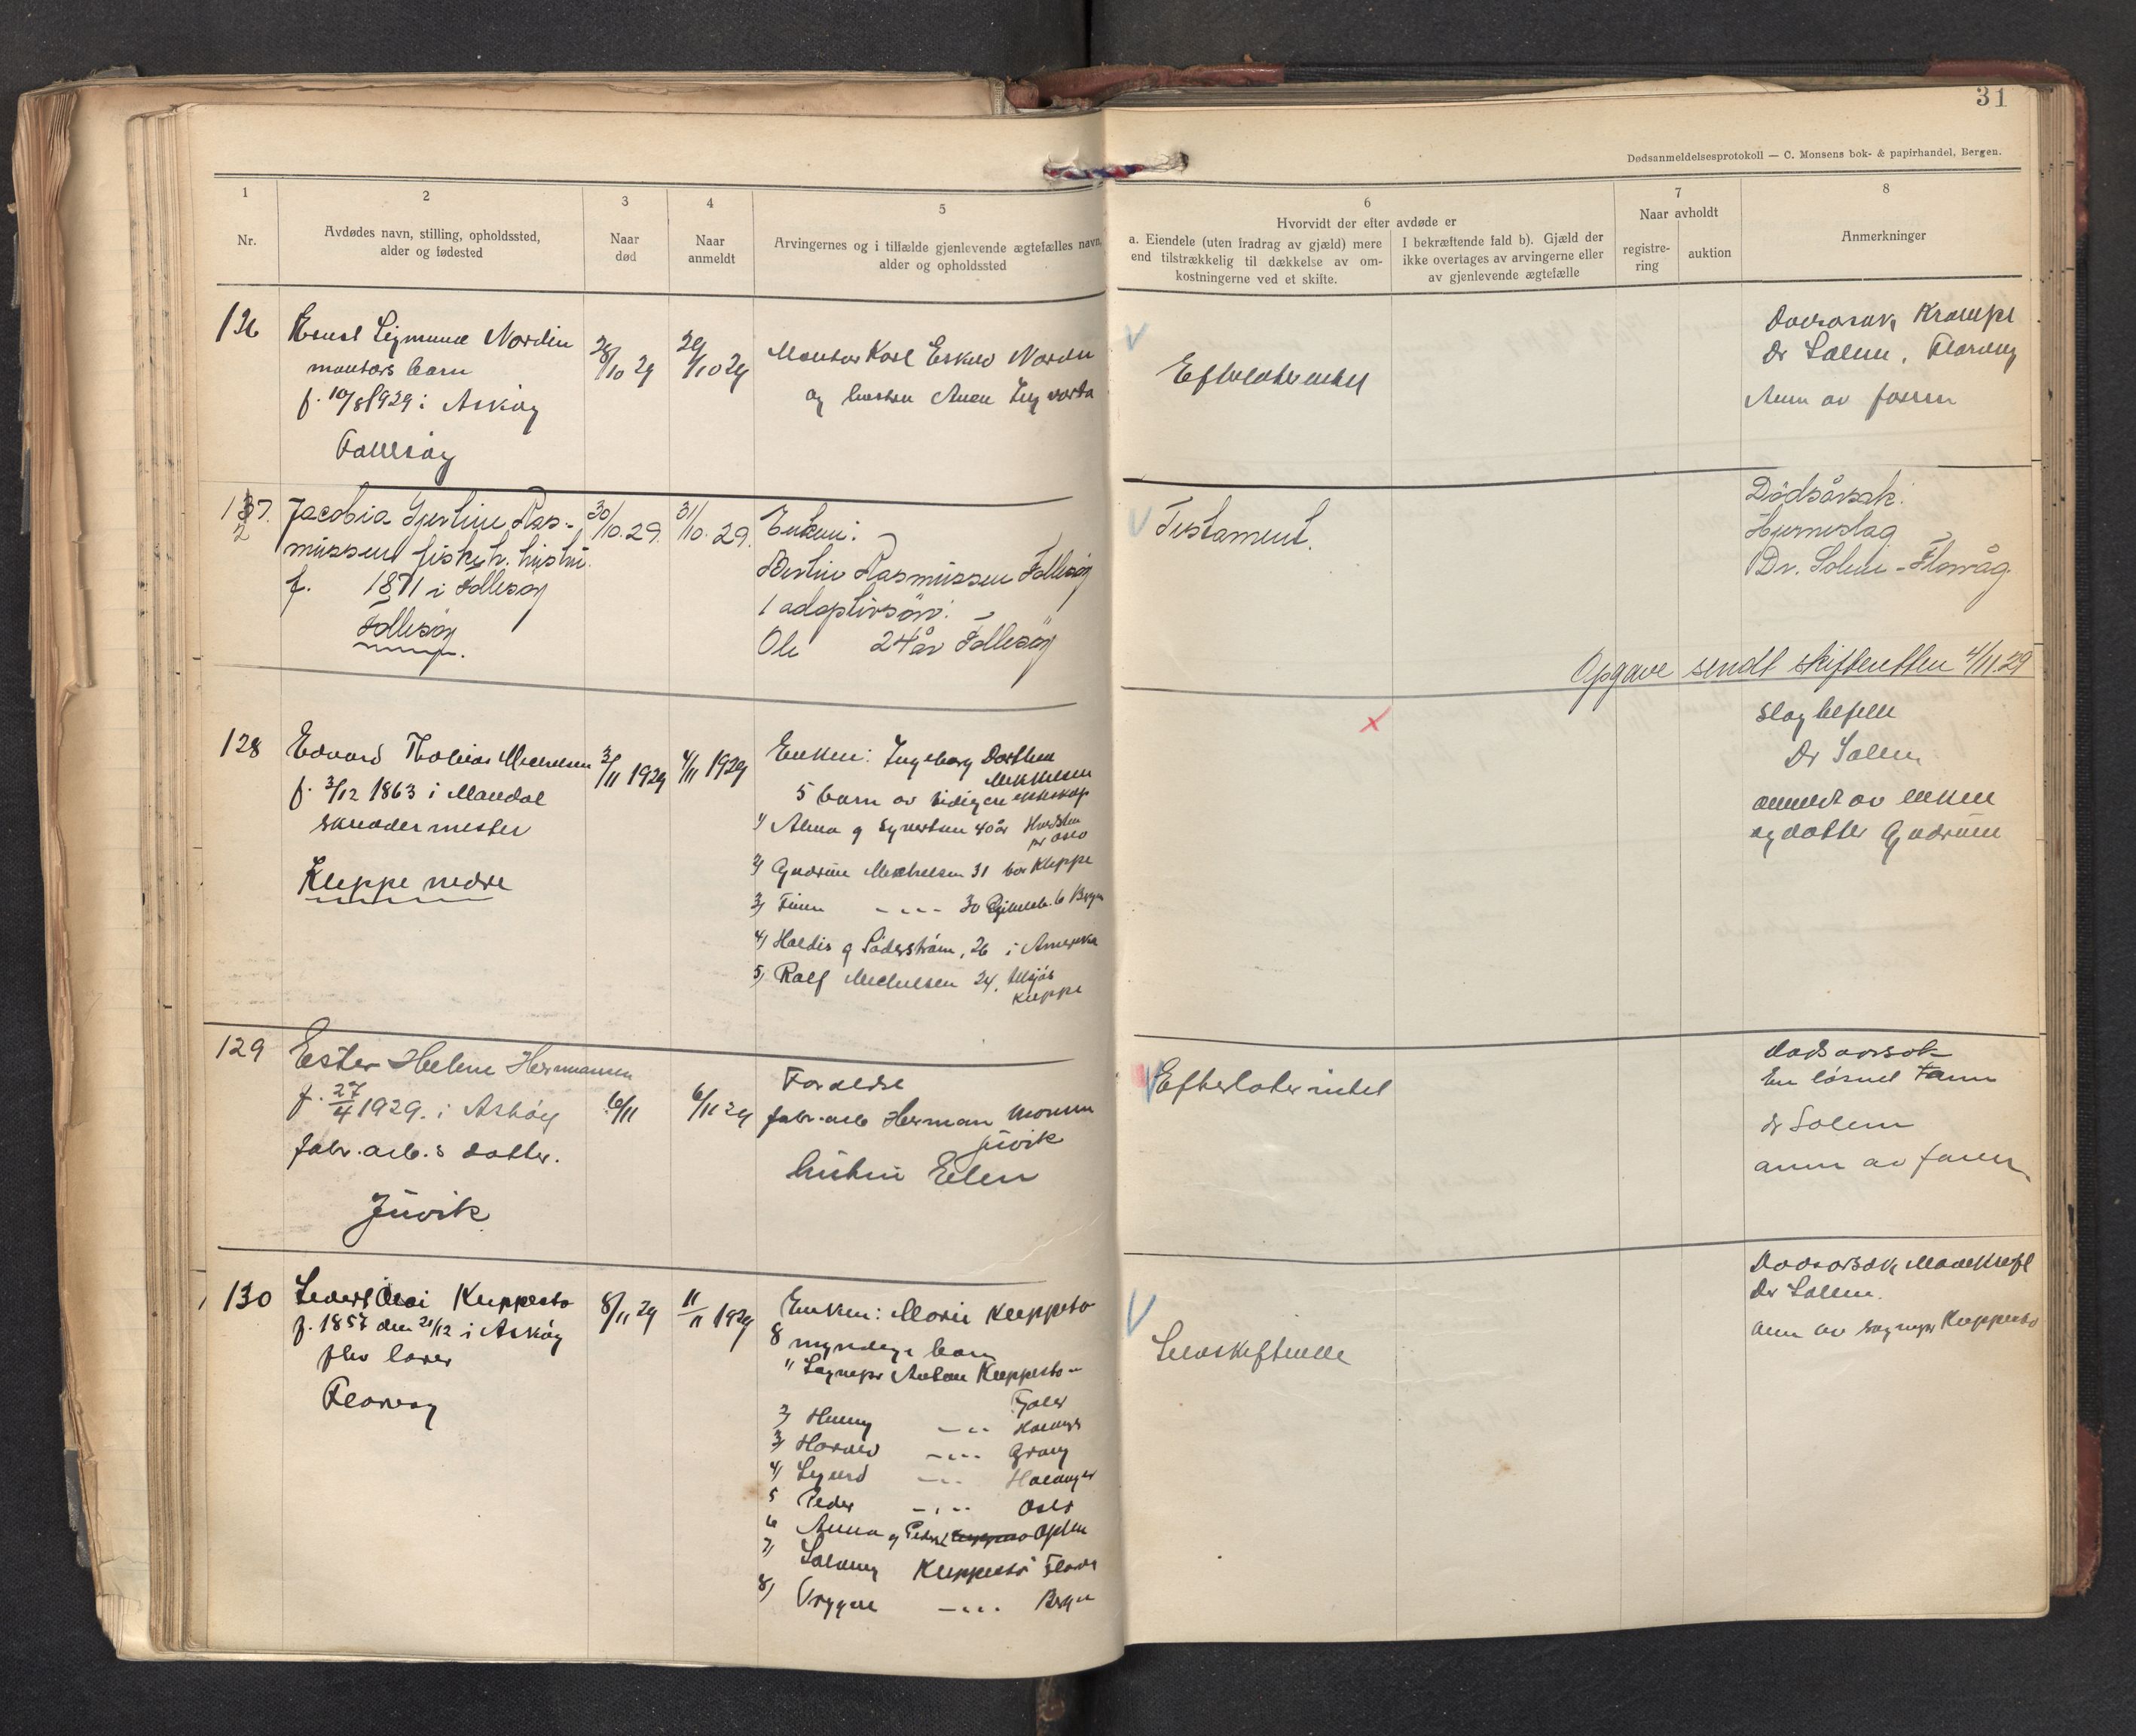 31
Dødsanmeldelsesprotokoll — C. Monsens bok- & papirhandel, Bergen.
1
Nr.
2
Avdødes navn, stilling, opholdssted,
alder og fødested
3
Naar
død
4
Naar
anmeldt
5
Arvingernes og i tilfælde gjenlevende ægtefælles navn,
alder og opholdssted
6
Hvorvidt der efter avdøde er
a. Eiendele (uten fradrag av gjæld) mere
end tilstrækkelig til dækkelse av om-
kostningerne ved et skifte.
I bekræftende fald b). Gjæld der
ikke overtages av arvingerne eller
av gjenlevende ægtefælle
7
Naar avholdt
registre-
ring
auktion
8
Anmerkninger
126
Sigmund Nordin
montørs barn
f. 10/8 1929 i Askøy
Follesøy
28/10 29
29/10 29
Montør Karl Nordin
og hustru
Efterlater intet
Dødsorsak, Krampe
Dr Solem, Florvåg
Anm av faren
127.
Jacobia Gjertine Ras-
mussen fiskeh. hustru.
f. 1871 i Follesøy
Follesøy
30/10. 29.
31/10. 29.
Enkem:
Bertin Rasmussen Follesøy
1 adoptivsøn:
Ole 24 år Follesøy
Testament.
Dødsårsak:
Hjerneslag
Dr. Solem - Florvåg.
Opgave sendt skifteretten 4/11.29
128
Edvard Tholias Mechelsen
f. 3/12 1863 i Mandal
skreddermester
Kleppe nedre
3/11 1929
4/11 1929
Enken: Ingeborg Dorthea
5 barn av tidigere ekteskap
1) Alma g Syvertsen 40 år
pr Oslo
2) Gudrun Mechelsen 31 bor Kleppe
3) Finn 30 6 Bergen
4) Haldis g Söderström, 26 i Amerika
5) Ralf Mechelsen 24. tilsjøs
Kleppe
X
Slagtilfelle
Dr Solem
anmeldt av enken
og datter Gudrun
129
Ester Helene Hermansen
f. 27/4 1929. i Askøy
fabr. arb.s datter.
Juvik
6/11
6/11 29
Foreldre
fabr. arb Herman Monsen
Juvik
hustru Elen
Efterlater intet
dødsorsak
dr Solem
anm av faren
130
Kleppestø
f. 1857 den 21/12 i Askøy
fhv lærer
Florvåg
8/11 29
11/11 1929
Enken: Marie Kleppestø
8 myndige barn
1) Sogneprest Anton Kleppestø
Fjaler
2) Henny
3) Harald
4) Sigurd
5 Peder Oslo
6 Anna g
7) Solveig Kleppestø
8) Trygve Bergen
Selvskiftende
Dødsorsak, Mavekreft
Dr Solem.
anm av sognepr Kleppestø